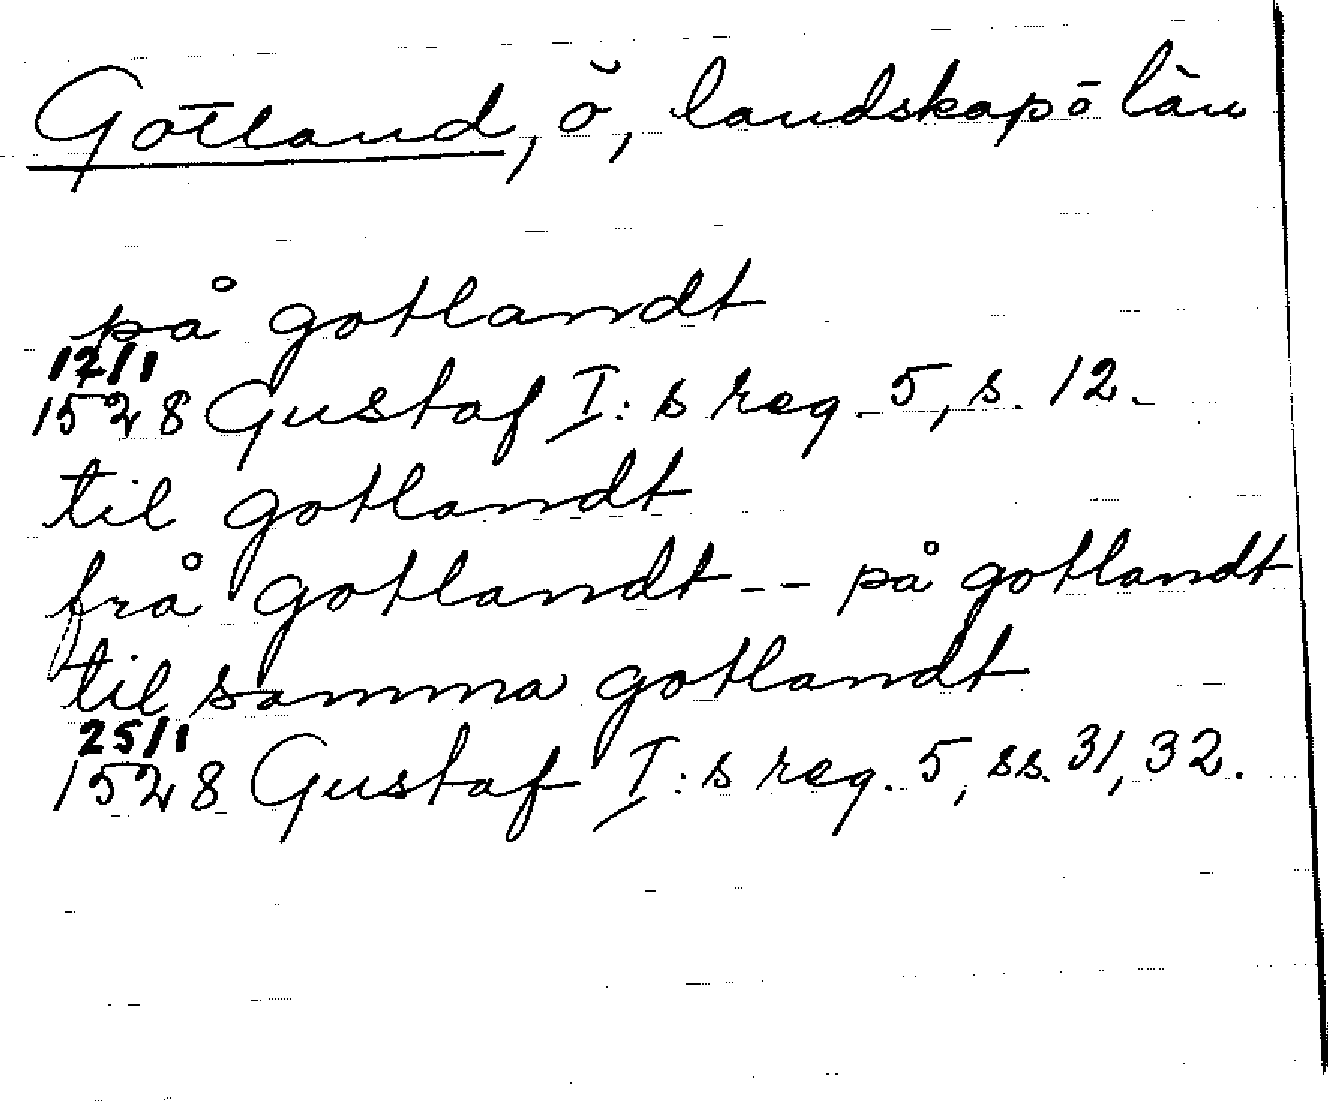 Gotland, ö, landskap o län
på gotlandt
12/1
1528 Gustaf I:s reg. 5, s. 12.
til gotlandt
frå gotlandt -- på gotlandt
til samma gotlandt
25/1
1528 Gustaf I:s reg. 5, ss. 31, 32.